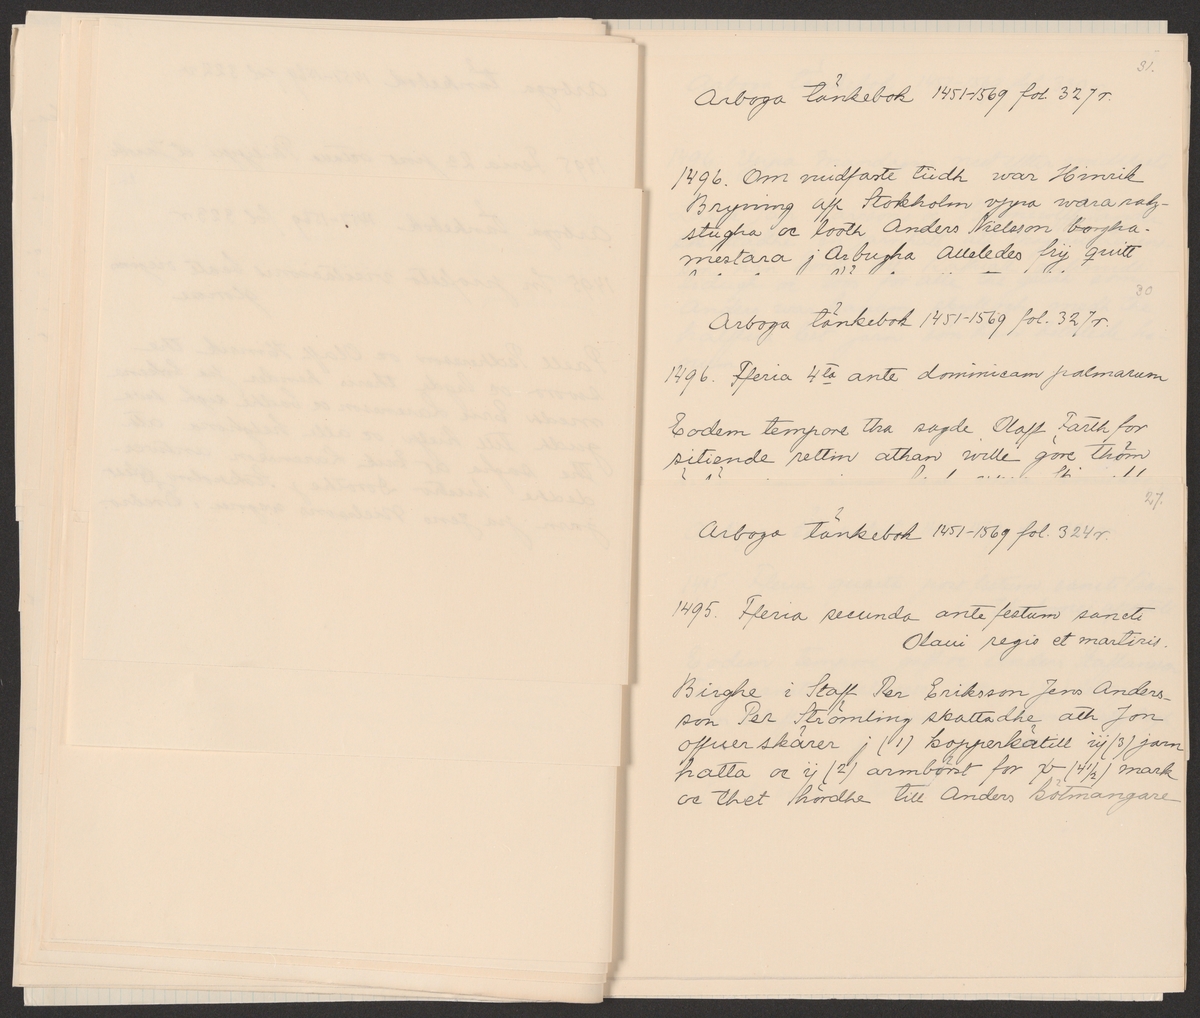 31.
Arboga tänkebok 1451-1569 fol. 327r.
1496. Om midfaste tiidh war Hinrik
Bryning aff Stokholm vppa wara radz-
stugha oc looth Anders Nielsson borgha-
mestara j Arbugha alleledes frij quitt
30
Arboga tänkebok 1451-1569 fol. 327r.
1496. Fferia 4ta ante dominicam palmarum
Eodem tempore tha sagde Olaff Färth for
sitiende rettin athan wille göre thöm
27.
Arboga tänkebok 1451-1569 fol. 324r.
1495. Fferia secunda ante festum sancti
Olaui regis et martiris.
Birghe i Staff Per Eriksson Jens Anders-
son Per Strömling skattadhe ath Jon
offuerskärer j (1) kopperkätill iij (3) jarn
hatta oc ij (2) armbörst for (4½) mark
oc thet hördhe till Anders kötmangare